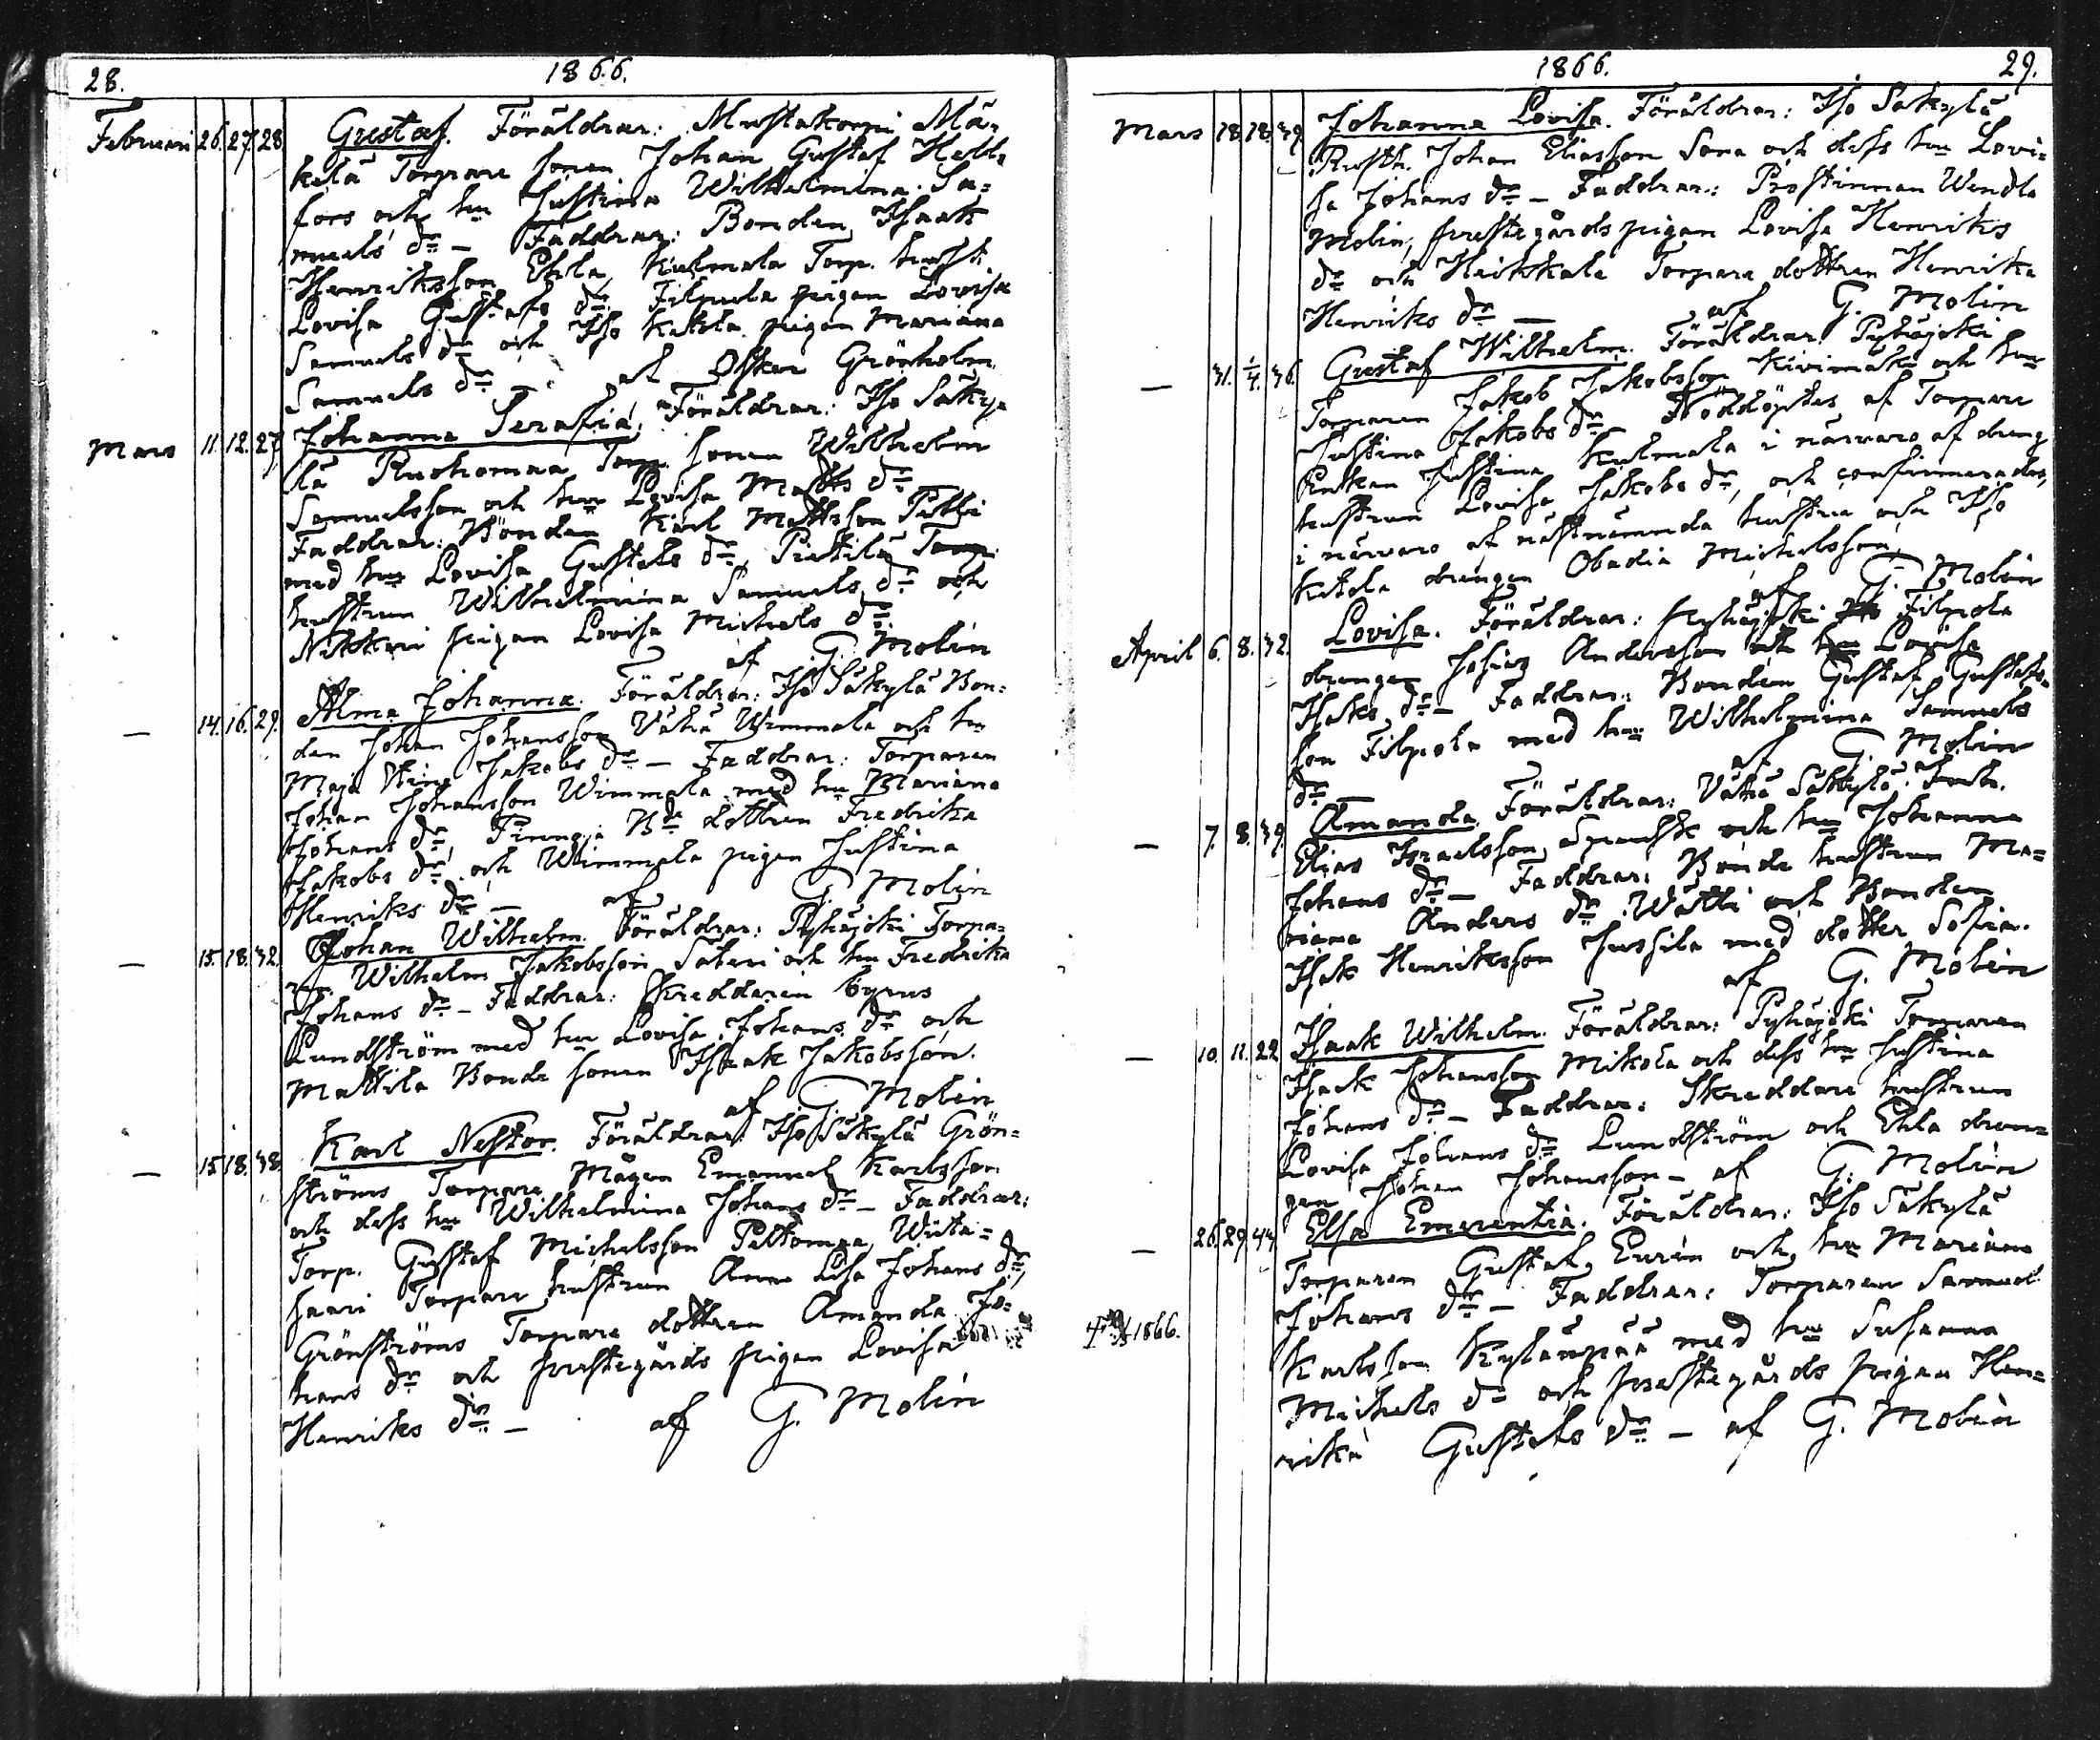 28.
1866.
Februari 26. 27. 28. Gustaf. Föräldrar: Mustakorpi Mä-
kelä Torpare sonen Johan Gustaf Hell-
fors och hu Justina Wilhelmina Sa-
muels dr — Faddrar: Bonden Isaak
Henriksson Ehla, Kulmala Torp. hustr.
Lovisa Gustafs dr Filpula pigan Lovisa
Samuels dr och Iso Ketola pigan Mariana
Samuels dr — af Oskar Grönholm
Mars 11. 12. 27. Johanna Serafia, Föräldrar: Iso Säky-
lä Ruohomaa Torp. sonen Wilhelm
Samuelsson och hu Lovisa Matts dr
Faddrar: Bonden Karl Mattsson Pätti
med hu Lovisa Gustafs dr, Prättilä Torp.
hustrun Wilhelmina Samuels dr och
Nikkari pigan Lovisa Michels dr
af G. Molin
— 14. 16. 29. Alma Johanna. Föräldrar: Iso Säkylä Bon-
den Johan Johansson Vähä Uimmala och hu
Maja Stina Jakobs dr — Faddrar: Torparen
Johan Johansson Wimmala med hu Mariana
Johans dr, Pinnoja Bde dottren Fredrika
Jakobs dr och Wimmala pigan Justina
Henriks dr — af G. Molin
— 15. 18. 32. Johan Wilhelm. Föräldrar: Pyhäjoki Torpa-
ren Wilhelm Jakobsson Sateri och hu Fredrika
Johans dr — Faddrar: Skreddaren Cyrus
Lundström med hu Lovisa Johans dr och
Mattila Bonde sonen Isaak Jakobsson.
af G. Molin
— 15. 18. 38. Karl Nestor. Föräldrar: Iso Säkylä Grön-
ströms Torpare Mågen Emanuel Karlsson
och dess hu Wilhelmina Johans dr — Faddrar:
Torp. Gustaf Michelsson Peltomaa, Wiita-
saari Torpare hustrun Anna Lisa Johans dr,
Grönströms Torpare dottren Amanda Jo-
hans dr och prestegårds pigan Lovisa
Henriks dr — af G. Molin
1866.
29.
Mars 18. 18. 39. Johanna Lovisa. Föräldrar: Iso Säkylä
Rusth. Johan Eliasson Sona och dess hu Lovi-
sa Johans dr — Faddrar: Prostinnan Wendla
Molin, prestegårds pigan Lovisa Henriks
dr och Heikkala Torpare dottren Henrika
Henriks dr — af G. Molin
— 31. 1/4. 36. Gustaf Wilhelm. Föräldrar Pyhäjoki
Torparen Jakob Jakobsson Kivimäki och hu
Justina Jakobs dr — Nöddöptes af Torpare
Enkan Justina Kulmala i närvaro af dreng
hustrun Lovisa Jakobs dr, och confirmerades,
i närvaro af nästnämnda hustru och Iso
Ketola drengen Obadia Michelsson,
af G. Molin
April 6. 8. 32. Lovisa. Föräldrar: Pyhäjoki Filpola
drengen Josua Andersson och hu Lovisa
Isaks dr — Faddrar: Bonden Gustaf Gustafs-
son Filpola med hu Wilhelmina Samuels
dr — af G. Molin
— 7. 8. 39. Amanda. Föräldrar: Vähä Säkylä Inh.
Elias Israelsson Spansk och hu Johanna
Johans dr — Faddrar: Bonde hustrun Ma-
riana Anders dr Wätti och Bonden
Isak Henriksson Jussila med dotter Sofia.
af G. Molin
— 10. 11. 22. Isaak Wilhelm. Föräldrar: Pyhäjoki Torparen
Isack Johansson Mikola och dess hu Justina
Johans dr — Faddrar: Skreddare hustrun
Lovisa Johans dr Lundström och Ehla dren-
gen Johan Johansson — af G. Molin
— 26. 29. 44. Elsa Emerentia. Föräldrar: Iso Säkylä
Torparen Gustaf Eurén och hu Mariana
Johans dr — Faddrar: Torparen Samuel
1866.
Karlsson Kylänpää med hu Susanna
Michels dr och prestegårds pigan Hen-
rika Gustafs dr — af G. Molin